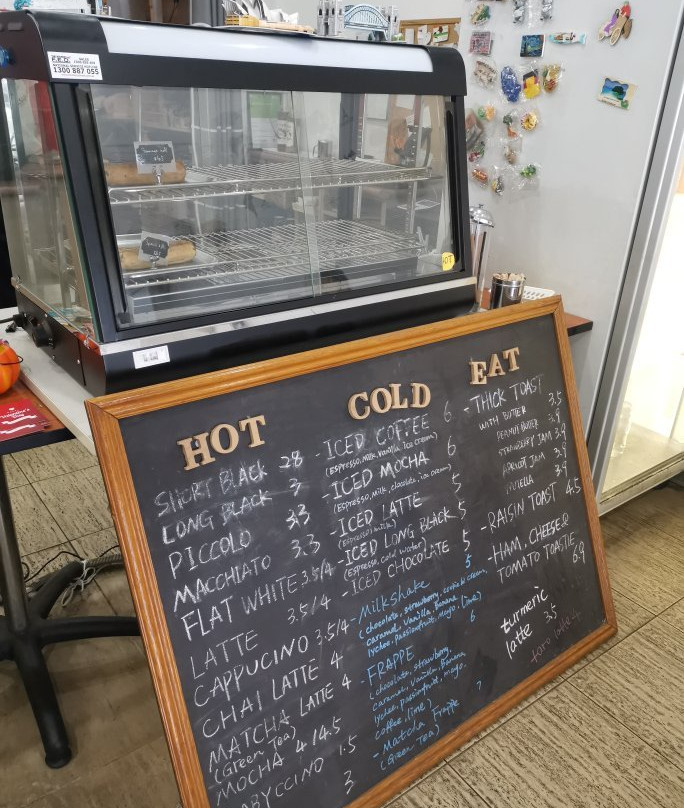 1300 887 055
HOT
HOT
SHORT BLACK 2.8
LONG BLACK 3
PICCOLO 3.3
MACCHIATO 3.3
FLAT WHITE 3.5/4
LATTE 3.5/4
CAPPUCINO 3.5/4
CHAI LATTE 4
MATCHA LATTE 4
(Green Tea)
MOCHA 4/4.5
BABYCCINO 1.5
3
COLD
- ICED COFFEE 6
(Espresso, Milk, Vanilla, ice cream)
- ICED MOCHA 6
(Espresso, Milk, chocolate, ice cream)
- ICED LATTE 5
(Espresso, milk)
- ICED LONG BLACK 5
(Espresso, cold water)
- ICED CHOCOLATE 5
- Milkshake 5
(chocolate, strawberry,
caramel, Vanilla, Banana,
lychee, passionfruit, mango, lime)
- FRAPPE 6
(chocolate, strawberry,
caramel, vanilla, Banana,
lychee, passionfruit, mango,
coffee, lime)
- Matcha Frappe 7
(Green Tea)
EAT
- THICK TOAST
WITH BUTTER 3.5
PEANUT BUTTER 3.9
STRAWBERRY JAM 3.9
APRICOT JAM 3.9
NUTELLA 3.9
- RAISIN TOAST 4.5
- HAM, CHEESE &
TOMATO TOASTIE 6.9
turmeric
latte 3.5
taro latte 4